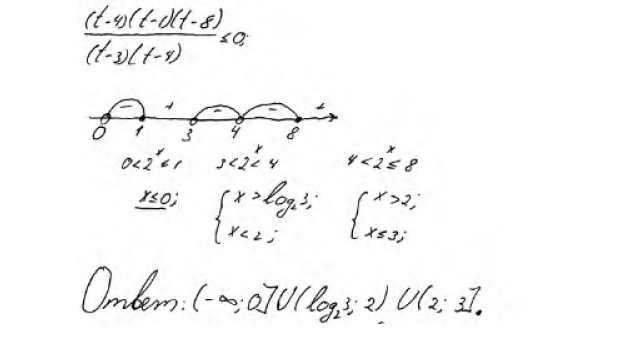 (t-4)(t-1)(t-8)
(t-3)(t-4) ≤0;
- + - - +
0 1 3 4 8
0<2^x≤1 3<2^x<4 4<2^x≤8
x≤0; { x>log₂3; { x>2;
x<2; x≤3;
Ответ: (-∞; 0]U(log₂3; 2) U(2; 3].